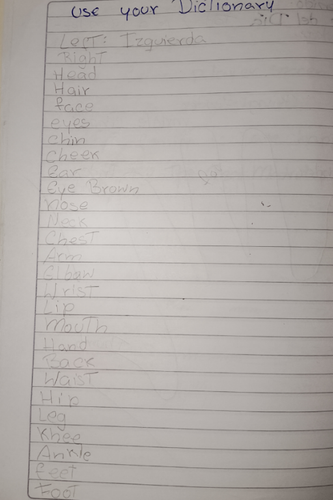 Use your Dictionary
Left: Izquierda
Right
Head
Hair
face
eyes
chin
cheek
ear
Eye Brown
nose
Neck
Chest
Arm
Elbaw
Wrist
Lip
Mouth
Hand
Back
Waist
Hip
Leg
Khee
Ankle
feet
Foot